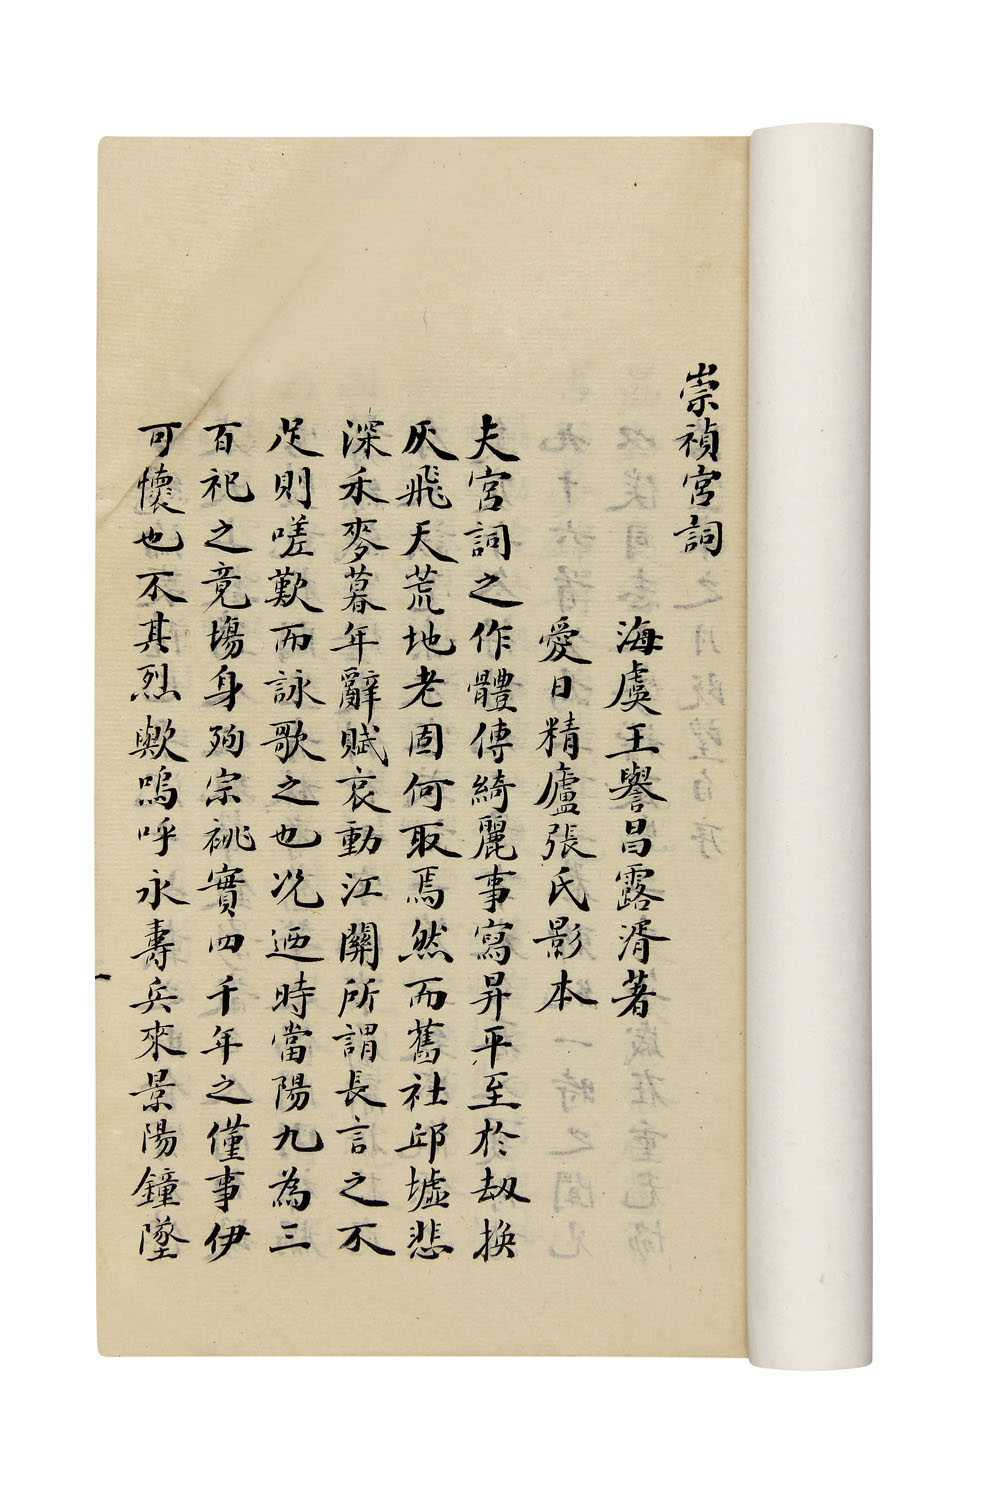 崇禎宮詞
海虞王譽昌露湑著
愛日精廬張氏影本
夫宮詞之作體傳綺麗事寫昇平至於刼換
灰飛天荒地老固何取焉然而舊社邱墟悲
深禾麥暮年辭賦哀動江關所謂長言之不
足則嗟歎而詠歌之也况迺時當陽九為三
百祀之竟塲身殉宗祧實四千年之僅事伊
可懷也不其烈歟嗚呼永壽兵來景陽鐘墜